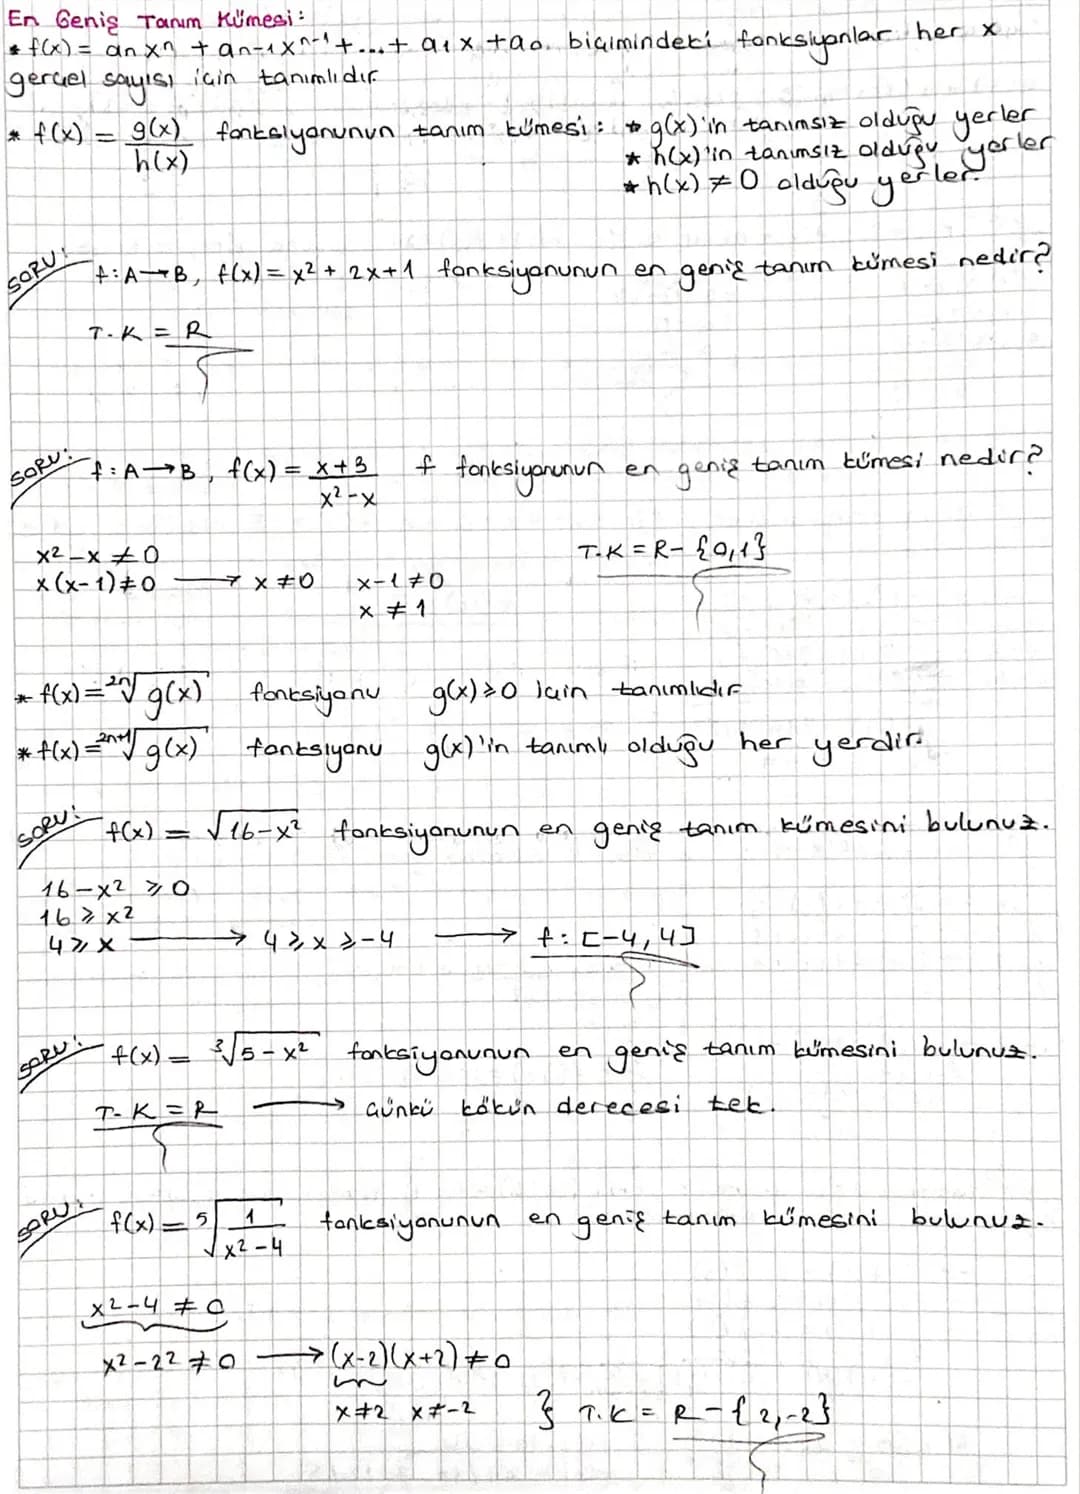 En Geniş Tanım Kümesi:
* f(x) = anxⁿ + an-1xⁿ⁻¹ + ... + a1x + a0. biçimindeki fonksiyonlar her x
gerçel sayısı için tanımlıdır
* f(x) = g(x)/h(x) fonksiyonunun tanım kümesi: * g(x)'in tanımsız olduğu yerler
* h(x)'in tanımsız olduğu yerler
* h(x) ≠ 0 olduğu yerler.
SORU: f: A→B, f(x) = x² + 2x+1 fonksiyonunun en geniş tanım kümesi nedir?
T.K = R
SORU: f: A→B, f(x) = x+3/x²-x f fonksiyonunun en geniş tanım kümesi nedir?
x²-x ≠ 0
T.K = R- {0,1}
x(x-1) ≠ 0 → x ≠ 0 x-1 ≠ 0
x ≠ 1
* f(x) = ²ⁿ√g(x) fonksiyonu g(x) ≥ 0 için tanımlıdır
* f(x) = ²ⁿ⁺¹√g(x) fonksiyonu g(x)'in tanımlı olduğu her yerdir.
SORU: f(x) = √16-x² fonksiyonunun en geniş tanım kümesini bulunuz.
16-x² ≥ 0
16 ≥ x²
4 ≥ x → 4 ≥ x ≥ -4 → f: [-4,4]
SORU: f(x) = ³√5-x² fonksiyonunun en geniş tanım kümesini bulunuz.
T.K = R → Çünkü kökün derecesi tek.
SORU: f(x) = ⁵√1/x²-4 fonksiyonunun en geniş tanım kümesini bulunuz.
x²-4 ≠ 0
x²-2² ≠ 0 → (x-2)(x+2) ≠ 0
x≠2 x≠-2 } T.K = R-{2,-2}